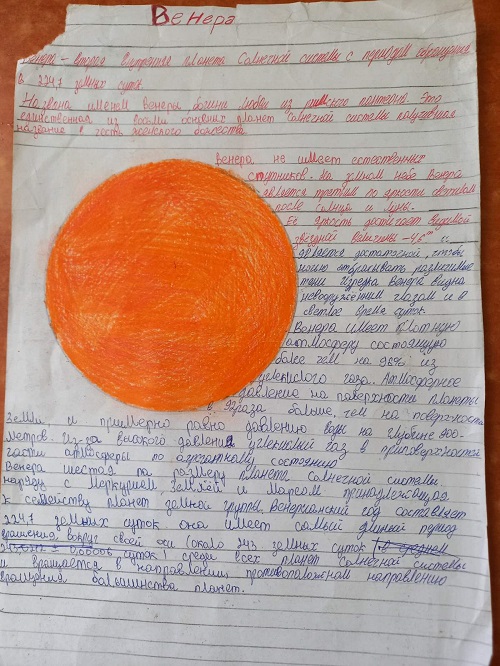 Венера
Венера - вторая внутренняя планета Солнечной системы с периодом обращения
в 224,7 земных суток.
Названа именем Венеры богини любви из римского пантеона. Это
единственная из восьми основных планет Солнечной системы получившая
название в честь женского божества.
Венера не имеет естественных
спутников. На земном небе Венера
является третьим по яркости светилом
после солнца и луны.
Её яркость достигает видимой
звёздной величины -4,6 и
является достаточной, чтобы
ночью отбрасывать различимые
тени Изредка Венера видна
невооружённым глазом и в
светлое время суток.
Венера имеет плотную
атмосферу состоящую
более чем на 96% из
углекислого газа. Атмосферное
давление на поверхности планеты
в 92 раза больше, чем на поверхности
Земли и примерно равно давлению воды на глубине 900-
метров. Из-за высокого давления углекислый газ в приповерхностной
части атмосферы по агрегатному состоянию
Венера шестая по размеру планета солнечной системы.
наряду с Меркурием, Землёй и Марсом принадлежащая
к семейству планет земной группы. Венерианский год составляет
224,7 земных суток она имеет самый длинный период
вращения вокруг своей оси (около 243 земных суток в среднем
суток) среди всех планет солнечной системы
и вращается в направлении, противоположном направлению
вращения большинства планет.